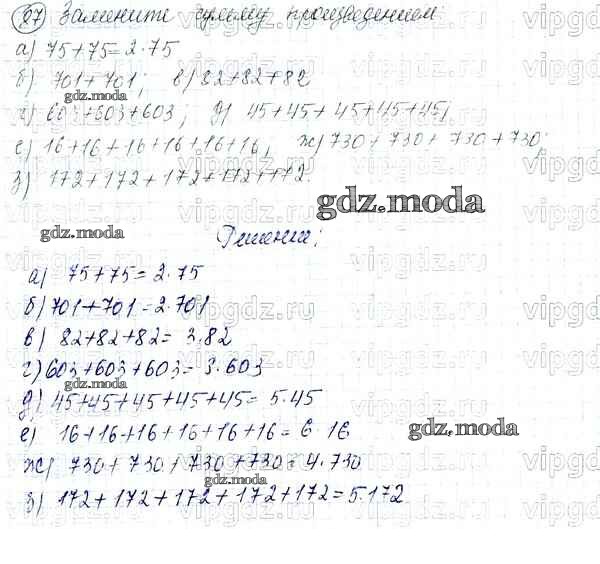 87 Замените сумму произведением
а) 75+75=2·75
б) 701+701; в) 82+82+82
gdz.moda
г) 603+603+603; д) 45+45+45+45+45;
е) 16+16+16+16+16+16; ж) 730+730+730+730;
з) 172+172+172+172+172.
gdz.moda
gdz.moda
Решение:
а) 75+75=2·75
б) 701+701=2·701
в) 82+82+82=3·82
gdz.moda
г) 603+603+603=3·603
д) 45+45+45+45+45=5·45
е) 16+16+16+16+16+16=6·16
gdz.moda
ж) 730+730+730+730=4·730
gdz.moda
з) 172+172+172+172+172=5·172
vipgdz.ru